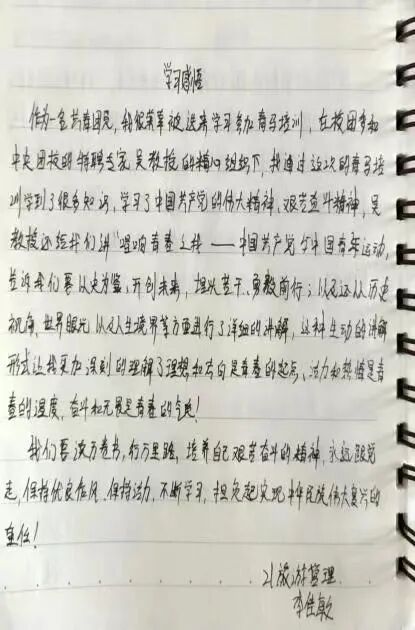 学习感悟
作为一名共青团员,我很荣幸被选来学习参加青马培训,在校团委和
中央团校的特聘专家吴教授的精心组织下,我通过这次的青马培
训学到了很多知识,学习了中国共产党的伟大精神、艰苦奋斗精神,吴
教授还给我们讲“唱响青春之歌——中国共产党与中国青年运动,
告诉我们要以史为鉴,开创未来,埋头苦干、勇毅前行;以及还从历史
视角、世界眼光以及人生境界等方面进行了详细的讲解,这种生动的讲解
形式让我更加深刻的理解了理想和方向是青春的起点、活力和热情是青
春的温度、奋斗和无畏是青春的气息!
我们要读万卷书,行万里路,培养自己艰苦奋斗的精神,永远跟党
走,保持优良作风、保持活力,不断学习,担负起实现中华民族伟大复兴的
重任!
21旅游管理
李佳敏